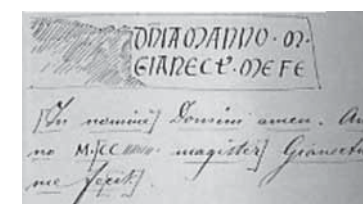 DNIAMANNO · M ·
GIANECT' · MEFE
[In nomine] Domini amen. An
no M.[CC magister] Gianectu
me fecit].